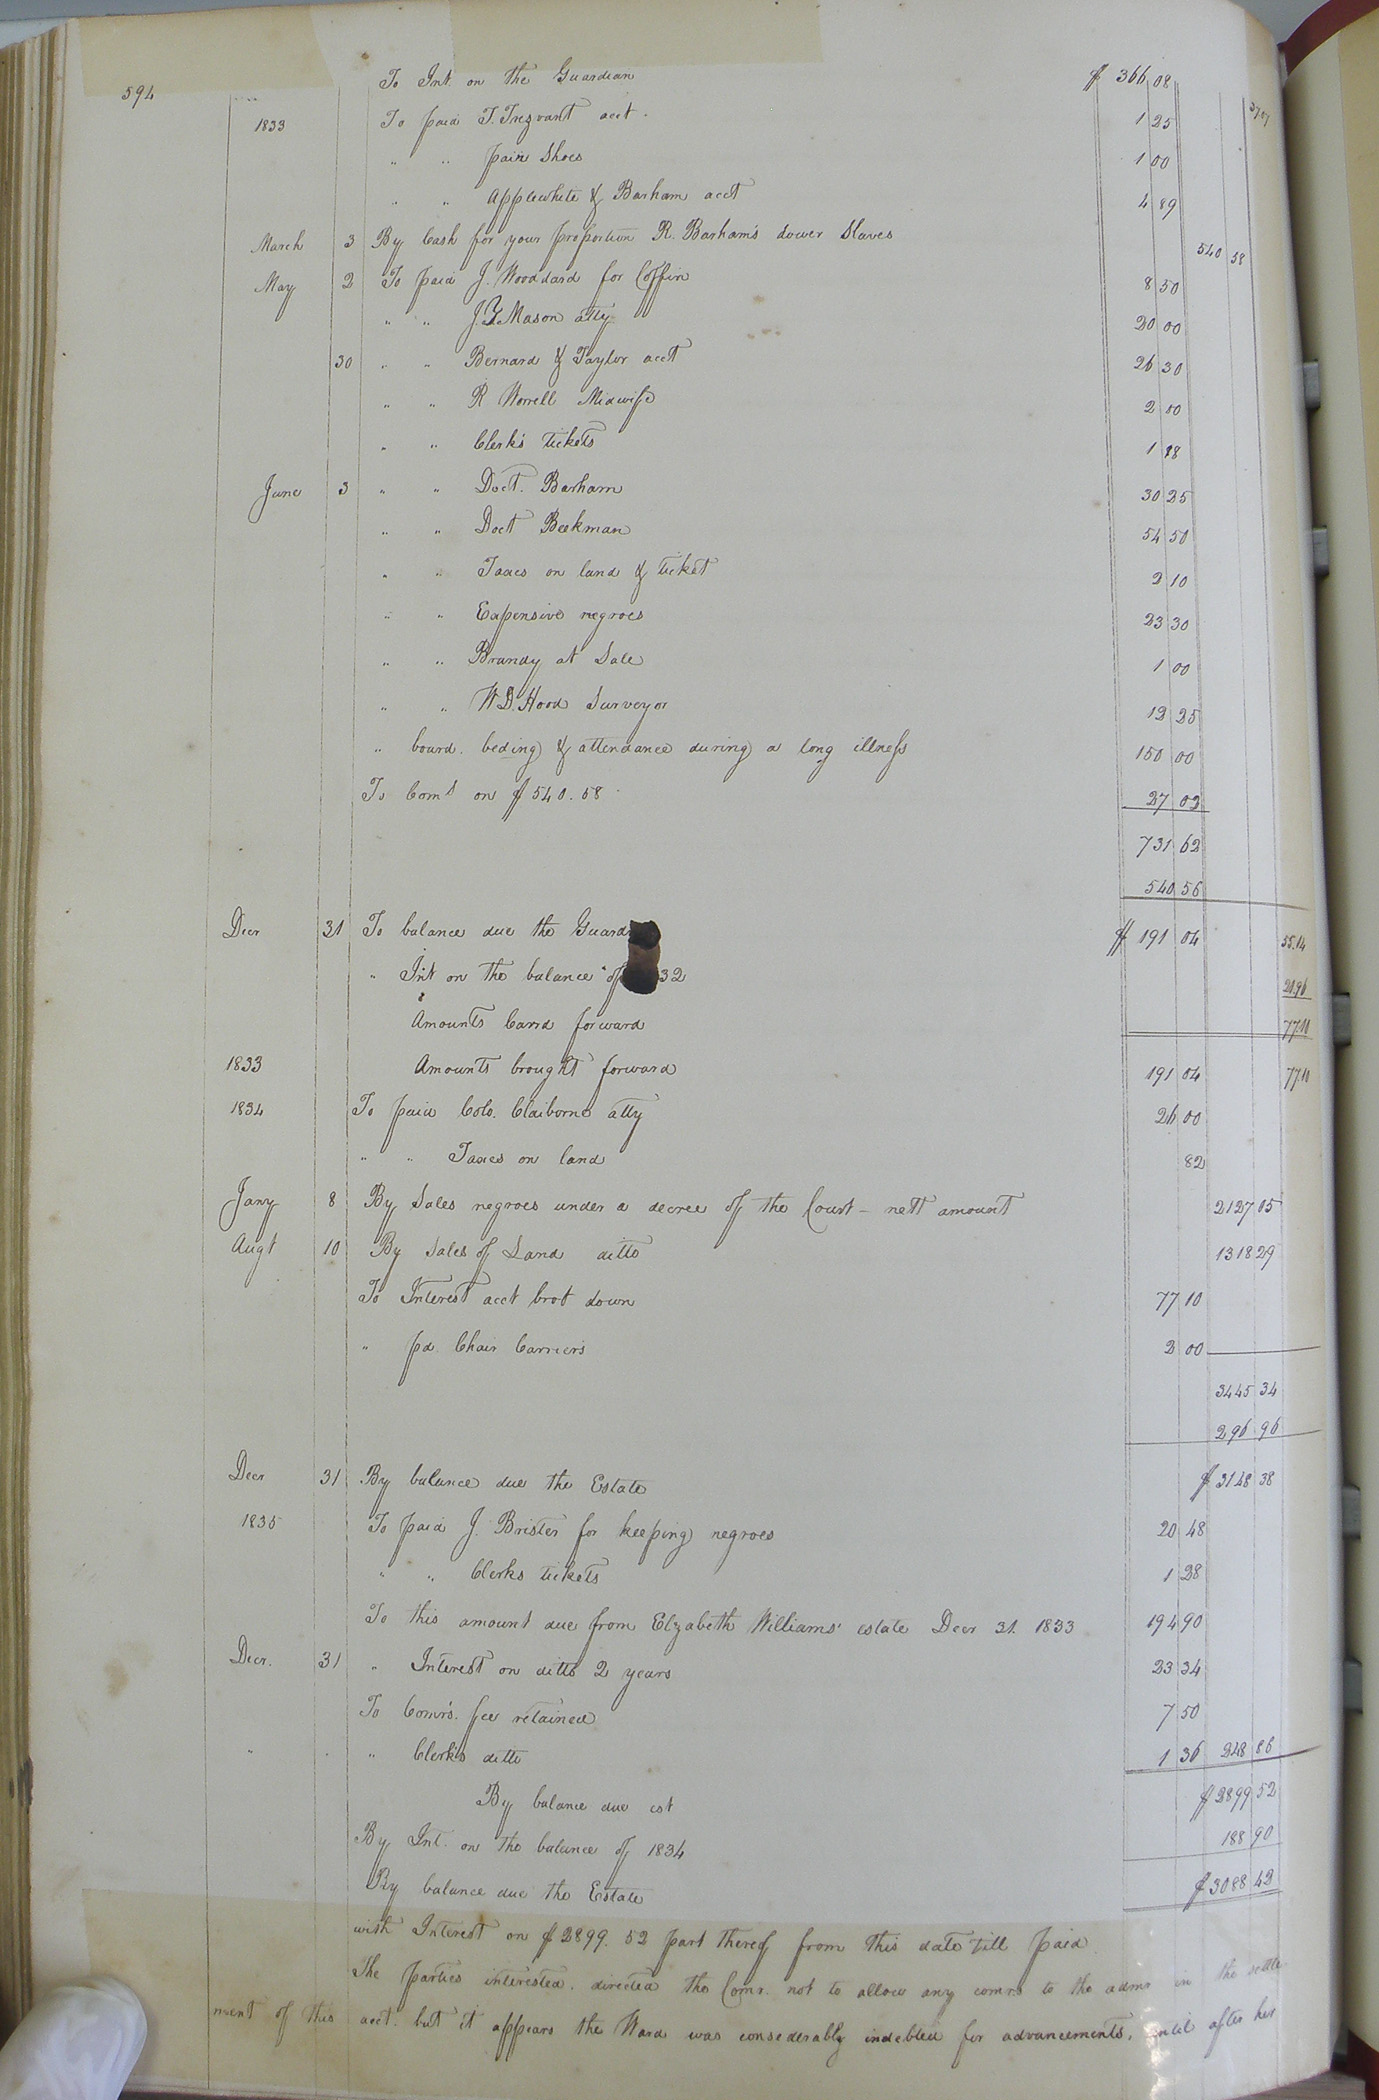 594 To Int. on the Guardian $ 366 08
1833 To paid T. Trezvant acct. 1 25 37.07
" " pair Shoes 1 00
" " Applewhite & Barham acct 4 89
March 3 By Cash for your proportion R. Barham's dower Slaves 540 58
May 2 To paid J. Wooddard for Coffin 8 50
" " J.Y. Mason atty 20 00
30 " " Bernard & Taylor acct 26 30
" " R Worrell Midwife 2 00
" " Clerk's tickets 1 18
June 3 " " Doct. Barham 30 25
" " Doct Beekman 54 50
" " Taxes on land & ticket 2 10
" " Expensive negroes 23 30
" " Brandy at Sale 1 00
" " W.D. Hood Surveyor 12 25
" board. beding & attendance during a long illness 150 00
To Coms on $540.58 27 02
731 62
540 56
Decr 31 To balance due the Guard $ 191 04 55.14
" Int on the balance of 32 21.96
Amounts Carrd forward 77.10
1833 Amounts brought forward 191 04 77.10
1834 To paid Colo. Claiborne atty 26 00
" " Taxes on land 82
Jany 8 By Sales negroes under a decree of the Court - nett amount 2127 05
Augt 10 By Sales of Land ditto 1318 29
To Interest acct brot down 77 10
" pd. Chair Carriers 2 00
3445 34
296 96
Decr 31 By balance due the Estate $ 3148 38
1835 To paid J. Brister for keeping negroes 20 48
" " Clerks tickets 1 28
To this amount due from Elzabeth Williams' estate Decr 31. 1833 194 90
Decr. 31 " Interest on ditto 2 years 23 34
To Comrs. fee retained 7 50
" " " Clerk's ditto 1 36 248 86
By balance due est $ 2899 52
By Int. on the balance of 1834 188 90
By balance due the Estate $ 3088 42
with Interest on $2899.52 part thereof from this date till paid
The parties interested. directed the Comr. not to allow any comrs to the admr in the settle-
ment of this acct. but it appears the Ward was consederably indebted for advancements, until after her